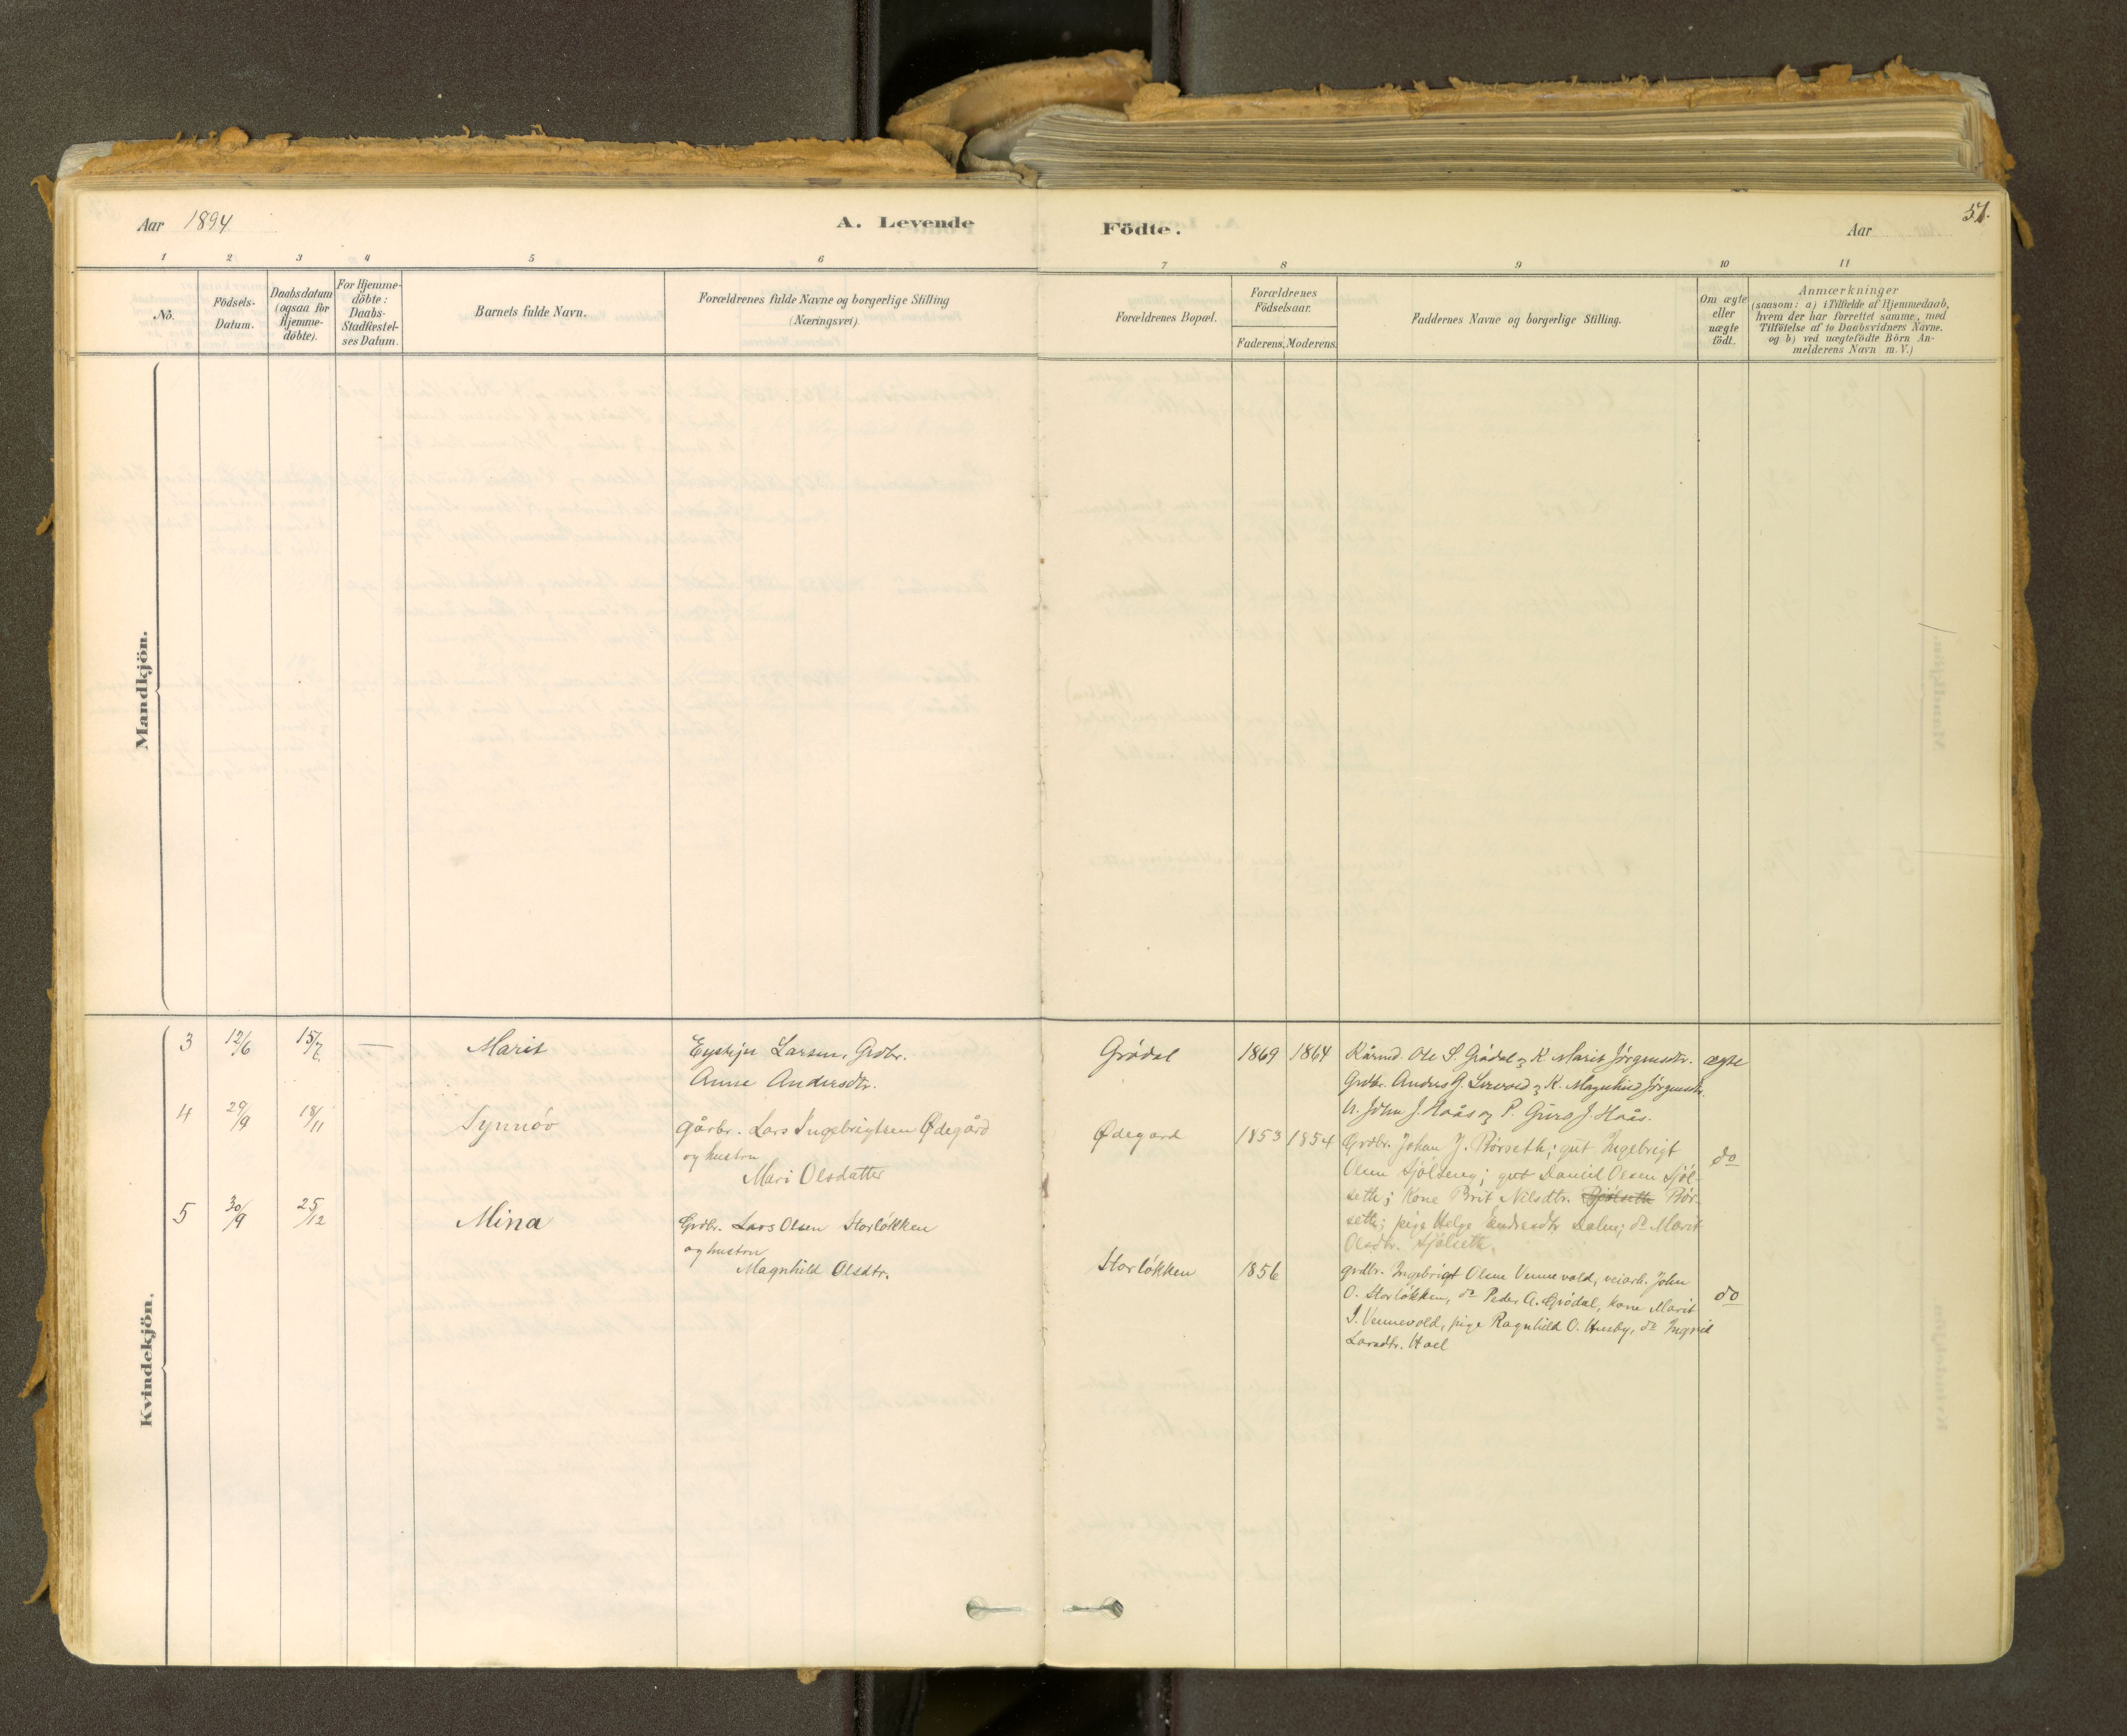 Aar 1894
A. Levende
Födte.
Aar
51.
1 2 3 4 5 6 7 8 9 10 11
No.
Födsels-
Datum.
Daabsdatum
(ogsaa for
Hjemme-
döbte).
For Hjemme-
döbte:
Daabs-
Stadfæstel-
ses Datum.
Barnets fulde Navn.
Forældrenes fulde Navne og borgerlige Stilling
(Næringsvei).
Forældrenes Bopæl.
Forældrenes
Födselsaar.
Faderens. Moderens.
Faddernes Navne og borgerlige Stilling.
Om ægte
eller
uægte
födt.
Anmærkninger
(saasom: a) i Tilfælde af Hjemmedaab,
hvem der har forrettet samme, med
Tilföielse af to Daabsvidners Navne.
og b) ved uægtefödte Börn An-
melderens Navn m. V.)
Mandkjön.
Kvindekjön.
3 12/6 15/7. — Marit
Larsen, Grdbr.
Anne Andersdtr.
Grødal 1869 1864
Ole S. Grødal og K. Marit Jørgensdtr.
Grdbr. Anders G. og K. Magnhild Jørgensdtr.
U. John J. Haås og P. Guro J. Haås.
ægte
4 29/9 18/11 Synnøv
Gårbr. Lars Ingebrigtsen Ødegård
og hustru
Mari Olsdatter
Ødegard 1853 1854
Grdbr. Johan J. Rørseth; gut Ingebrigt
Olsen Sjølseng; gut Daniel Olsen Sjøl-
seth; Kone Brit Nilsdtr. Sjølseth Rør-
seth; pige Helge Endresdtr. Dalen; do Marit
Olsdtr. Sjølseth.
do
5 30/9 25/12 Mina
Grdbr. Lars Olsen Storløkken
og hustru
Magnhild Olsdtr.
Storløkken 1856
grdbr. Ingebrigt Olsen Vennevold, veiarb. John
O. Storløkken, do Peder A. Grødal, kone Marit
I. Vennevold, pige Ragnhild O. Husby, do Ingrid
Larsdtr. Hoel
do